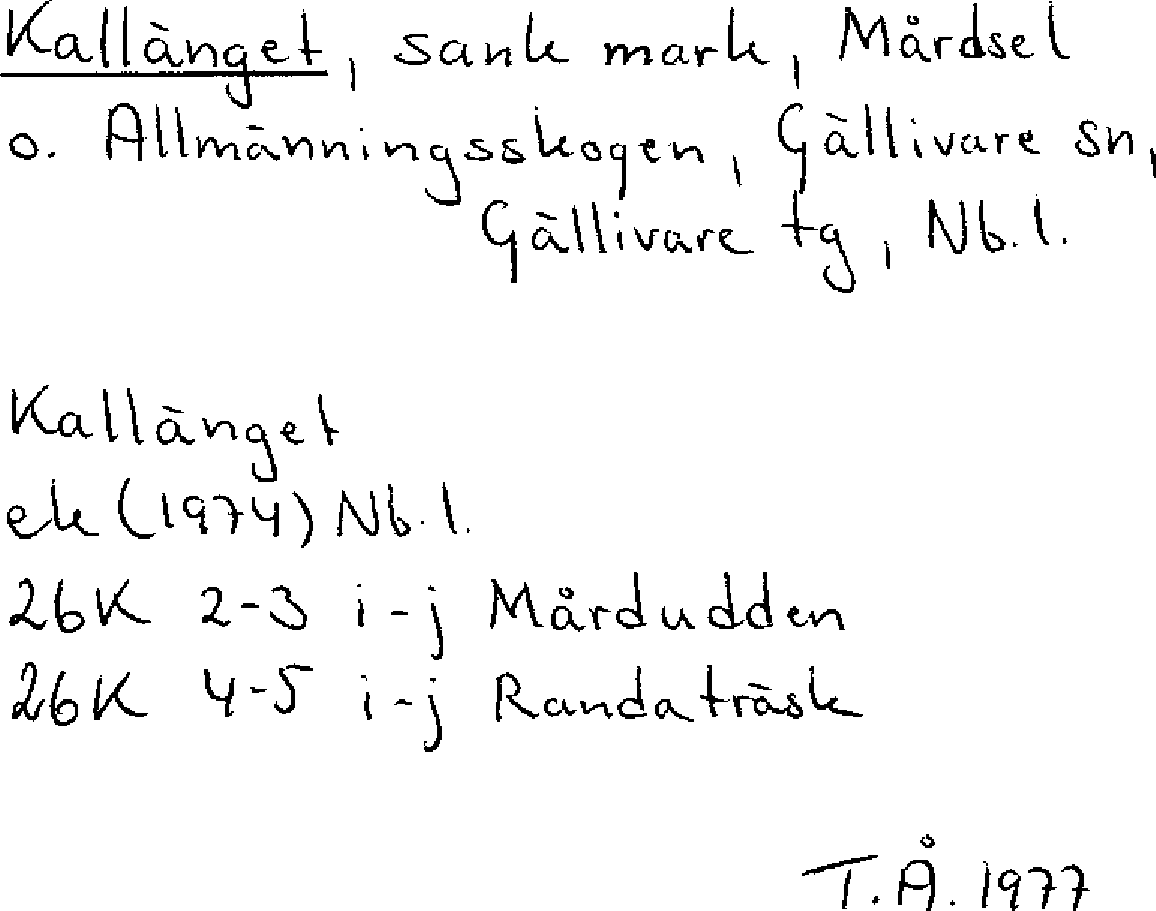 Kallänget, sank mark, Mårdsel
o. Allmänningsskogen, Gällivare sn,
Gällivare tg, Nb. l.
Kallänget
ek (1974) Nb. l.
26K 2-3 i-j Mårdudden
26K 4-5 i-j Randaträsk
T.Å. 1977